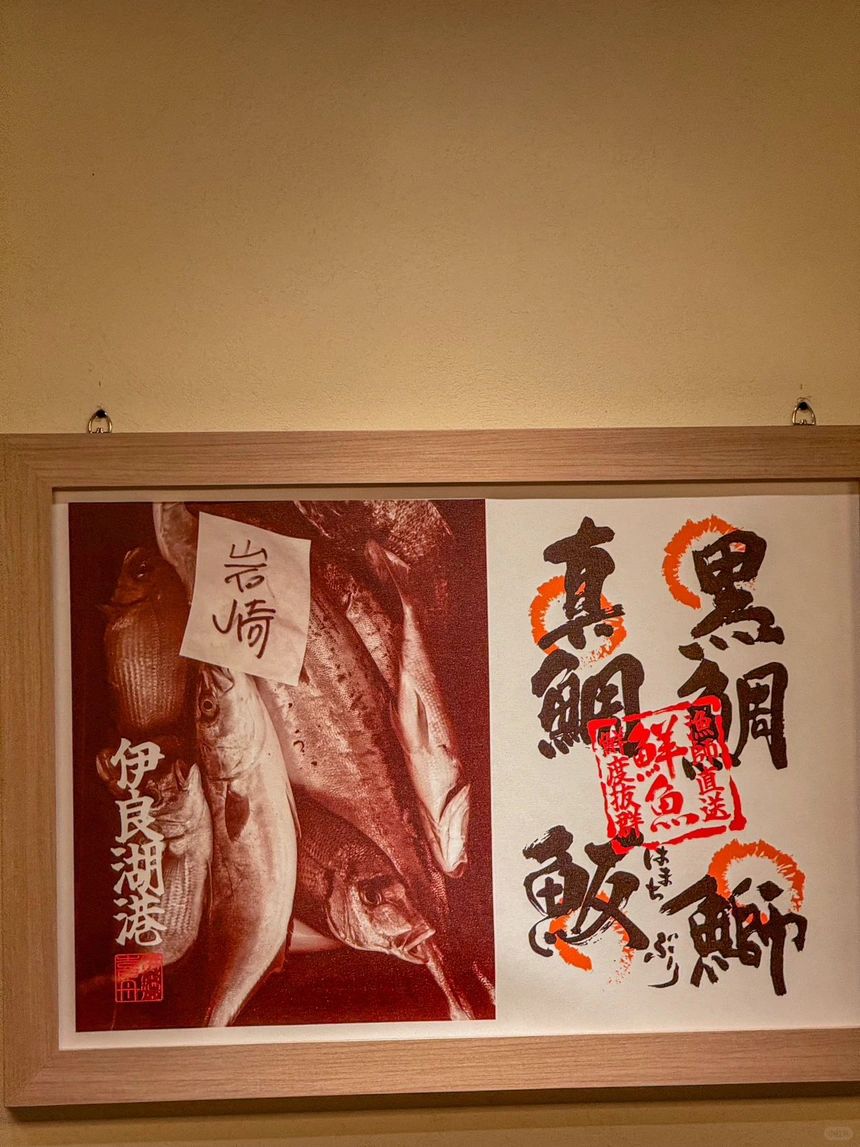 岩崎
伊良湖港
黒鯛
真鯛
漁師直送
鮮魚
鮮度抜群
鰤
ぶり
はまち
魬